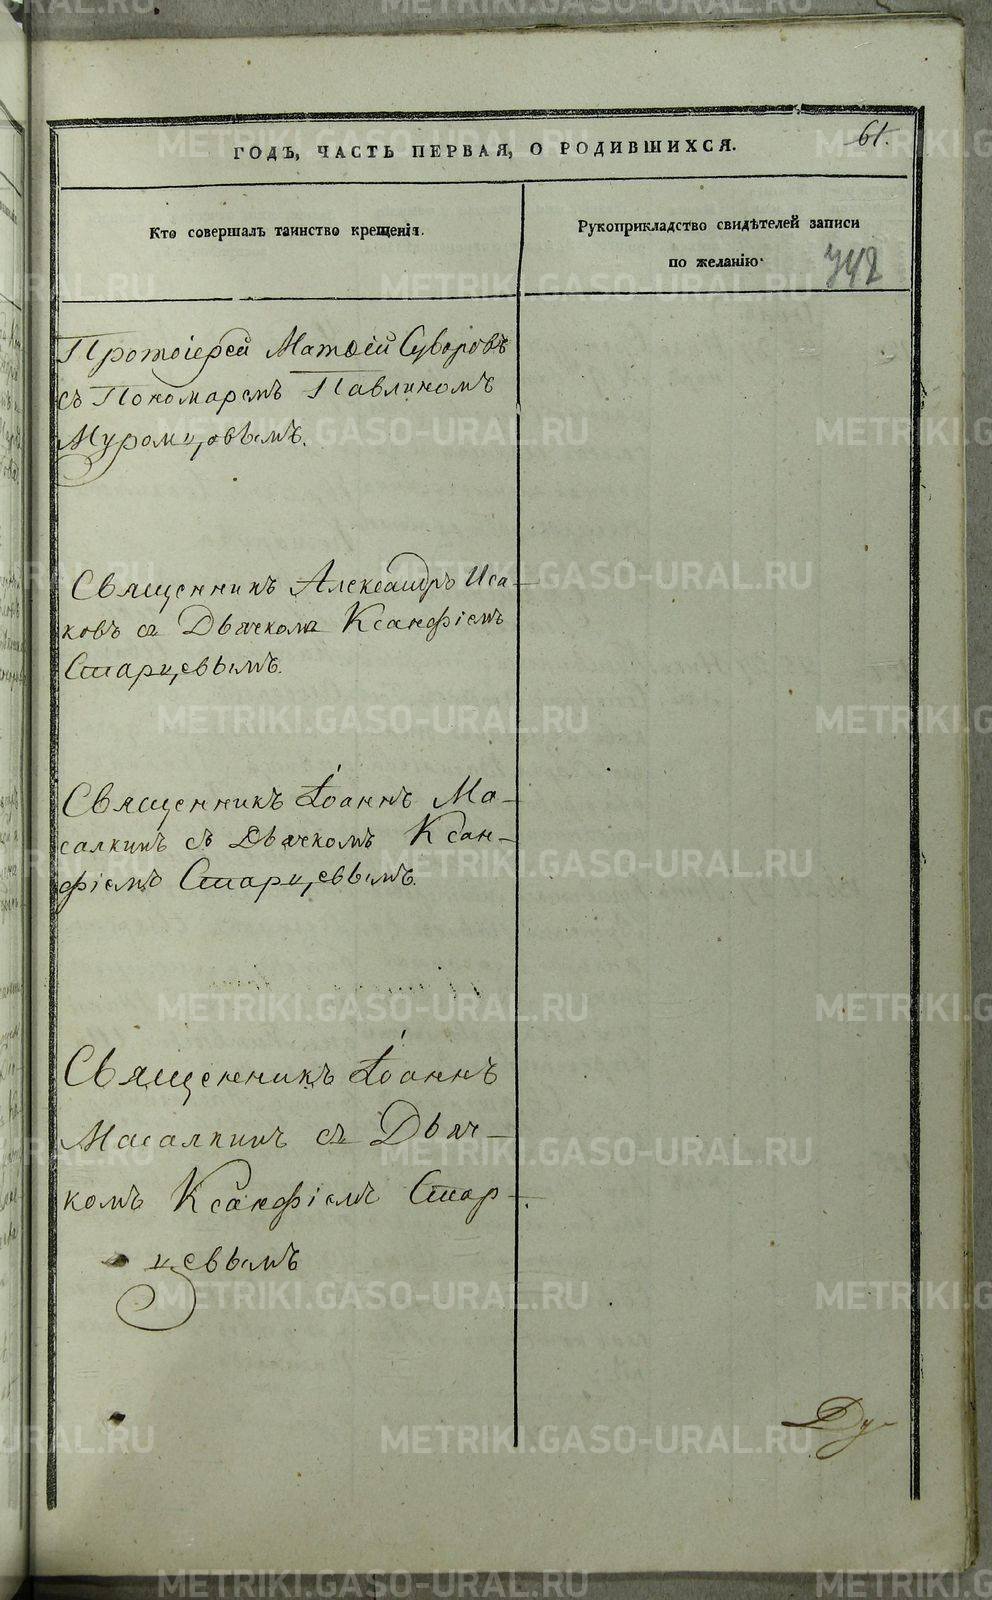 61.
ГОДЪ, ЧАСТЬ ПЕРВАЯ, О РОДИВШИХСЯ.
Кто совершалъ таинство крещенія.
Рукоприкладство свидѣтелей записи
по желанію.
342
Протоіерей Матѳій Суворовъ
съ Пономаремъ Павлиномъ
Муромцовымъ.
Священникъ Александръ Иса-
ковъ съ Дьячкомъ Ксанфіемъ
Старцевымъ.
Священникъ Іоаннъ Ма-
салкинъ съ Дьячкомъ Ксан-
фіемъ Старцевымъ.
Священникъ Іоаннъ
Масалкинъ съ Дьяч-
комъ Ксанфіемъ Стар-
цевымъ
Ду-
METRIKI.GASO-URAL.RU